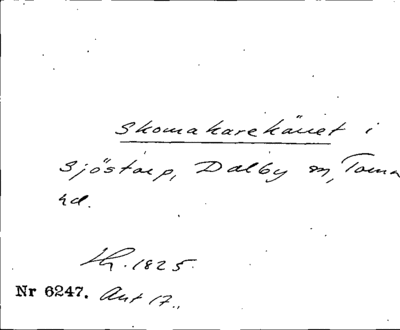 Skomakarekäuet i
Sjöstorp, Dalby sn, Torna
hd.
Lh. 1825.
Nr 6247. Ant 17.